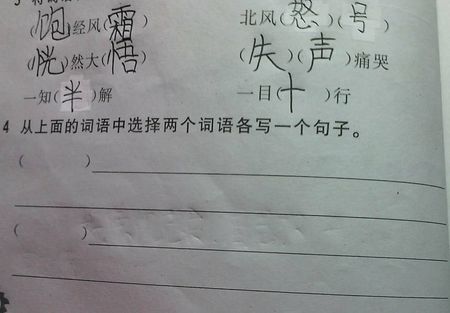 (饱)经风(霜) 北风(怒)(号)
(恍)然大(悟) (失)(声)痛哭
一知(半)解 一目(十)行
4 从上面的词语中选择两个词语各写一个句子。
( )
( )